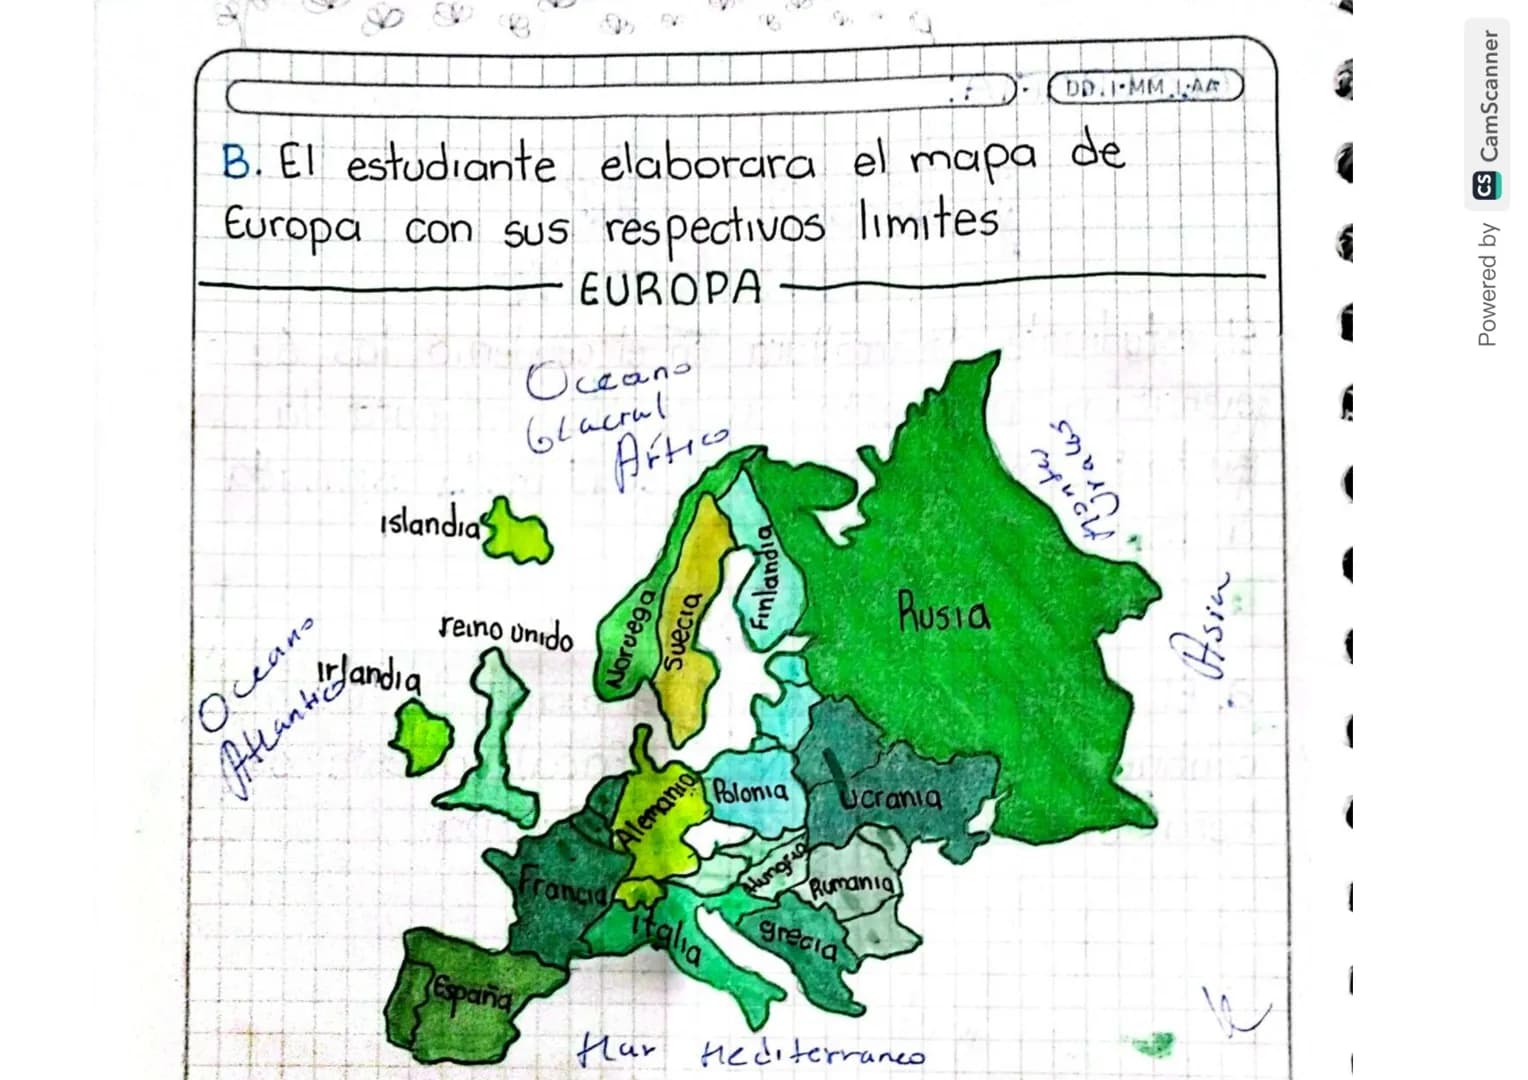 DD.1.MM.1.AA
B. El estudiante elaborara el mapa de
Europa con sus respectivos limites
EUROPA
Oceano
Glacial
Ártico
Montes
Urales
Islandia
Asia
Oceano
Atlantico
reino unido
Irlandia
Noruega
Suecia
Finlandia
Rusia
Alemania
Polonia
Ucrania
Francia
Hungria
Rumania
Italia
grecia
España
Mar Mediterraneo
Powered by CS CamScanner